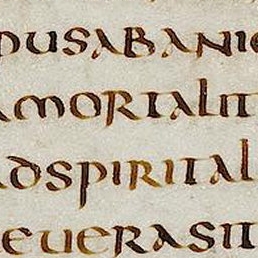 pusabanie
amortalit
adspirital
euerasit